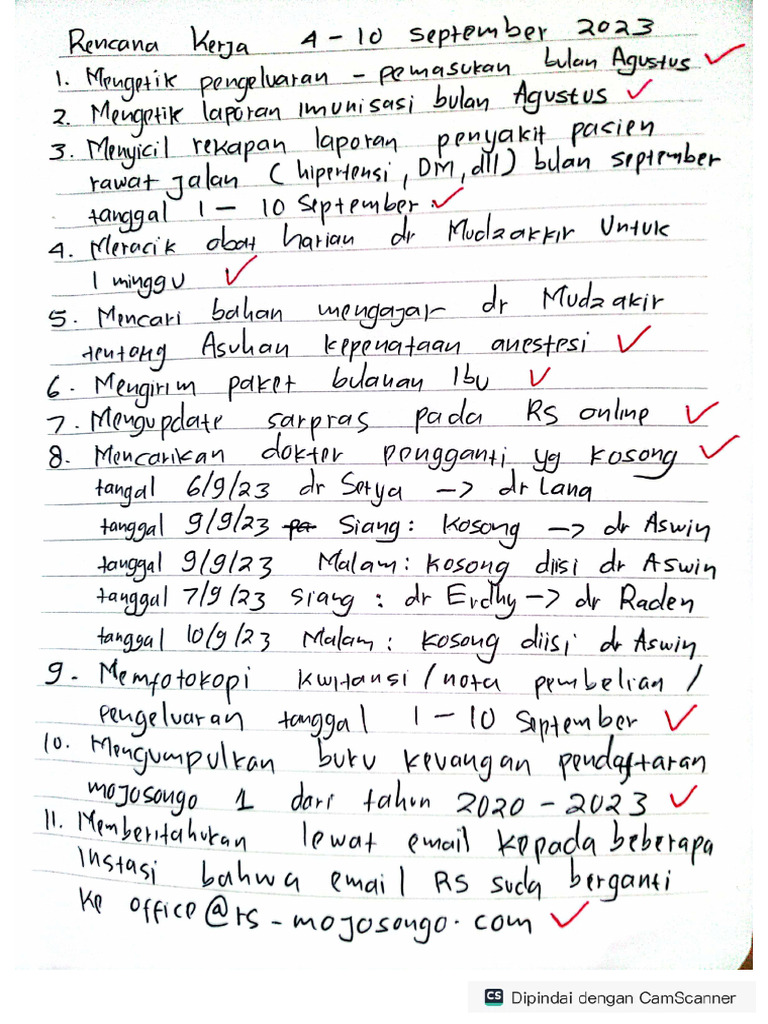 Rencana Kerja 4 - 10 September 2023
1. Mengetik pengeluaran - pemasukan bulan Agustus ✓
2. Mengetik laporan imunisasi bulan Agustus ✓
3. Menyicil rekapan laporan penyakit pasien
rawat jalan (hipertensi, DM, dll) bulan september
tanggal 1 - 10 September ✓
4. Meracik obat harian dr Mudzakkir Untuk
1 minggu ✓
5. Mencari bahan mengajar dr Mudzakir
tentang Asuhan kepenataan anestesi ✓
6. Mengirim paket bulanan Ibu ✓
7. Mengupdate sarpras pada RS online ✓
8. Mencarikan dokter pengganti yg kosong ✓
tangal 6/9/23 dr Setya -> dr Lana
tanggal 9/9/23 Siang: Kosong -> dr Aswin
tanggal 9/9/23 Malam: kosong diisi dr Aswin
tanggal 7/9/23 siang : dr Erdhy -> dr Raden
tanggal 10/9/23 Malam: kosong diisi dr Aswin
9. Memfotokopi kwitansi / nota pembelian /
pengeluaran tanggal 1 - 10 September ✓
10. Mengumpulkan buku keuangan pendaftaran
mojosongo 1 dari tahun 2020 - 2023 ✓
11. Memberitahukan lewat email kepada beberapa
instasi bahwa email RS suda berganti
ke office@rs-mojosongo.com ✓
CS Dipindai dengan CamScanner